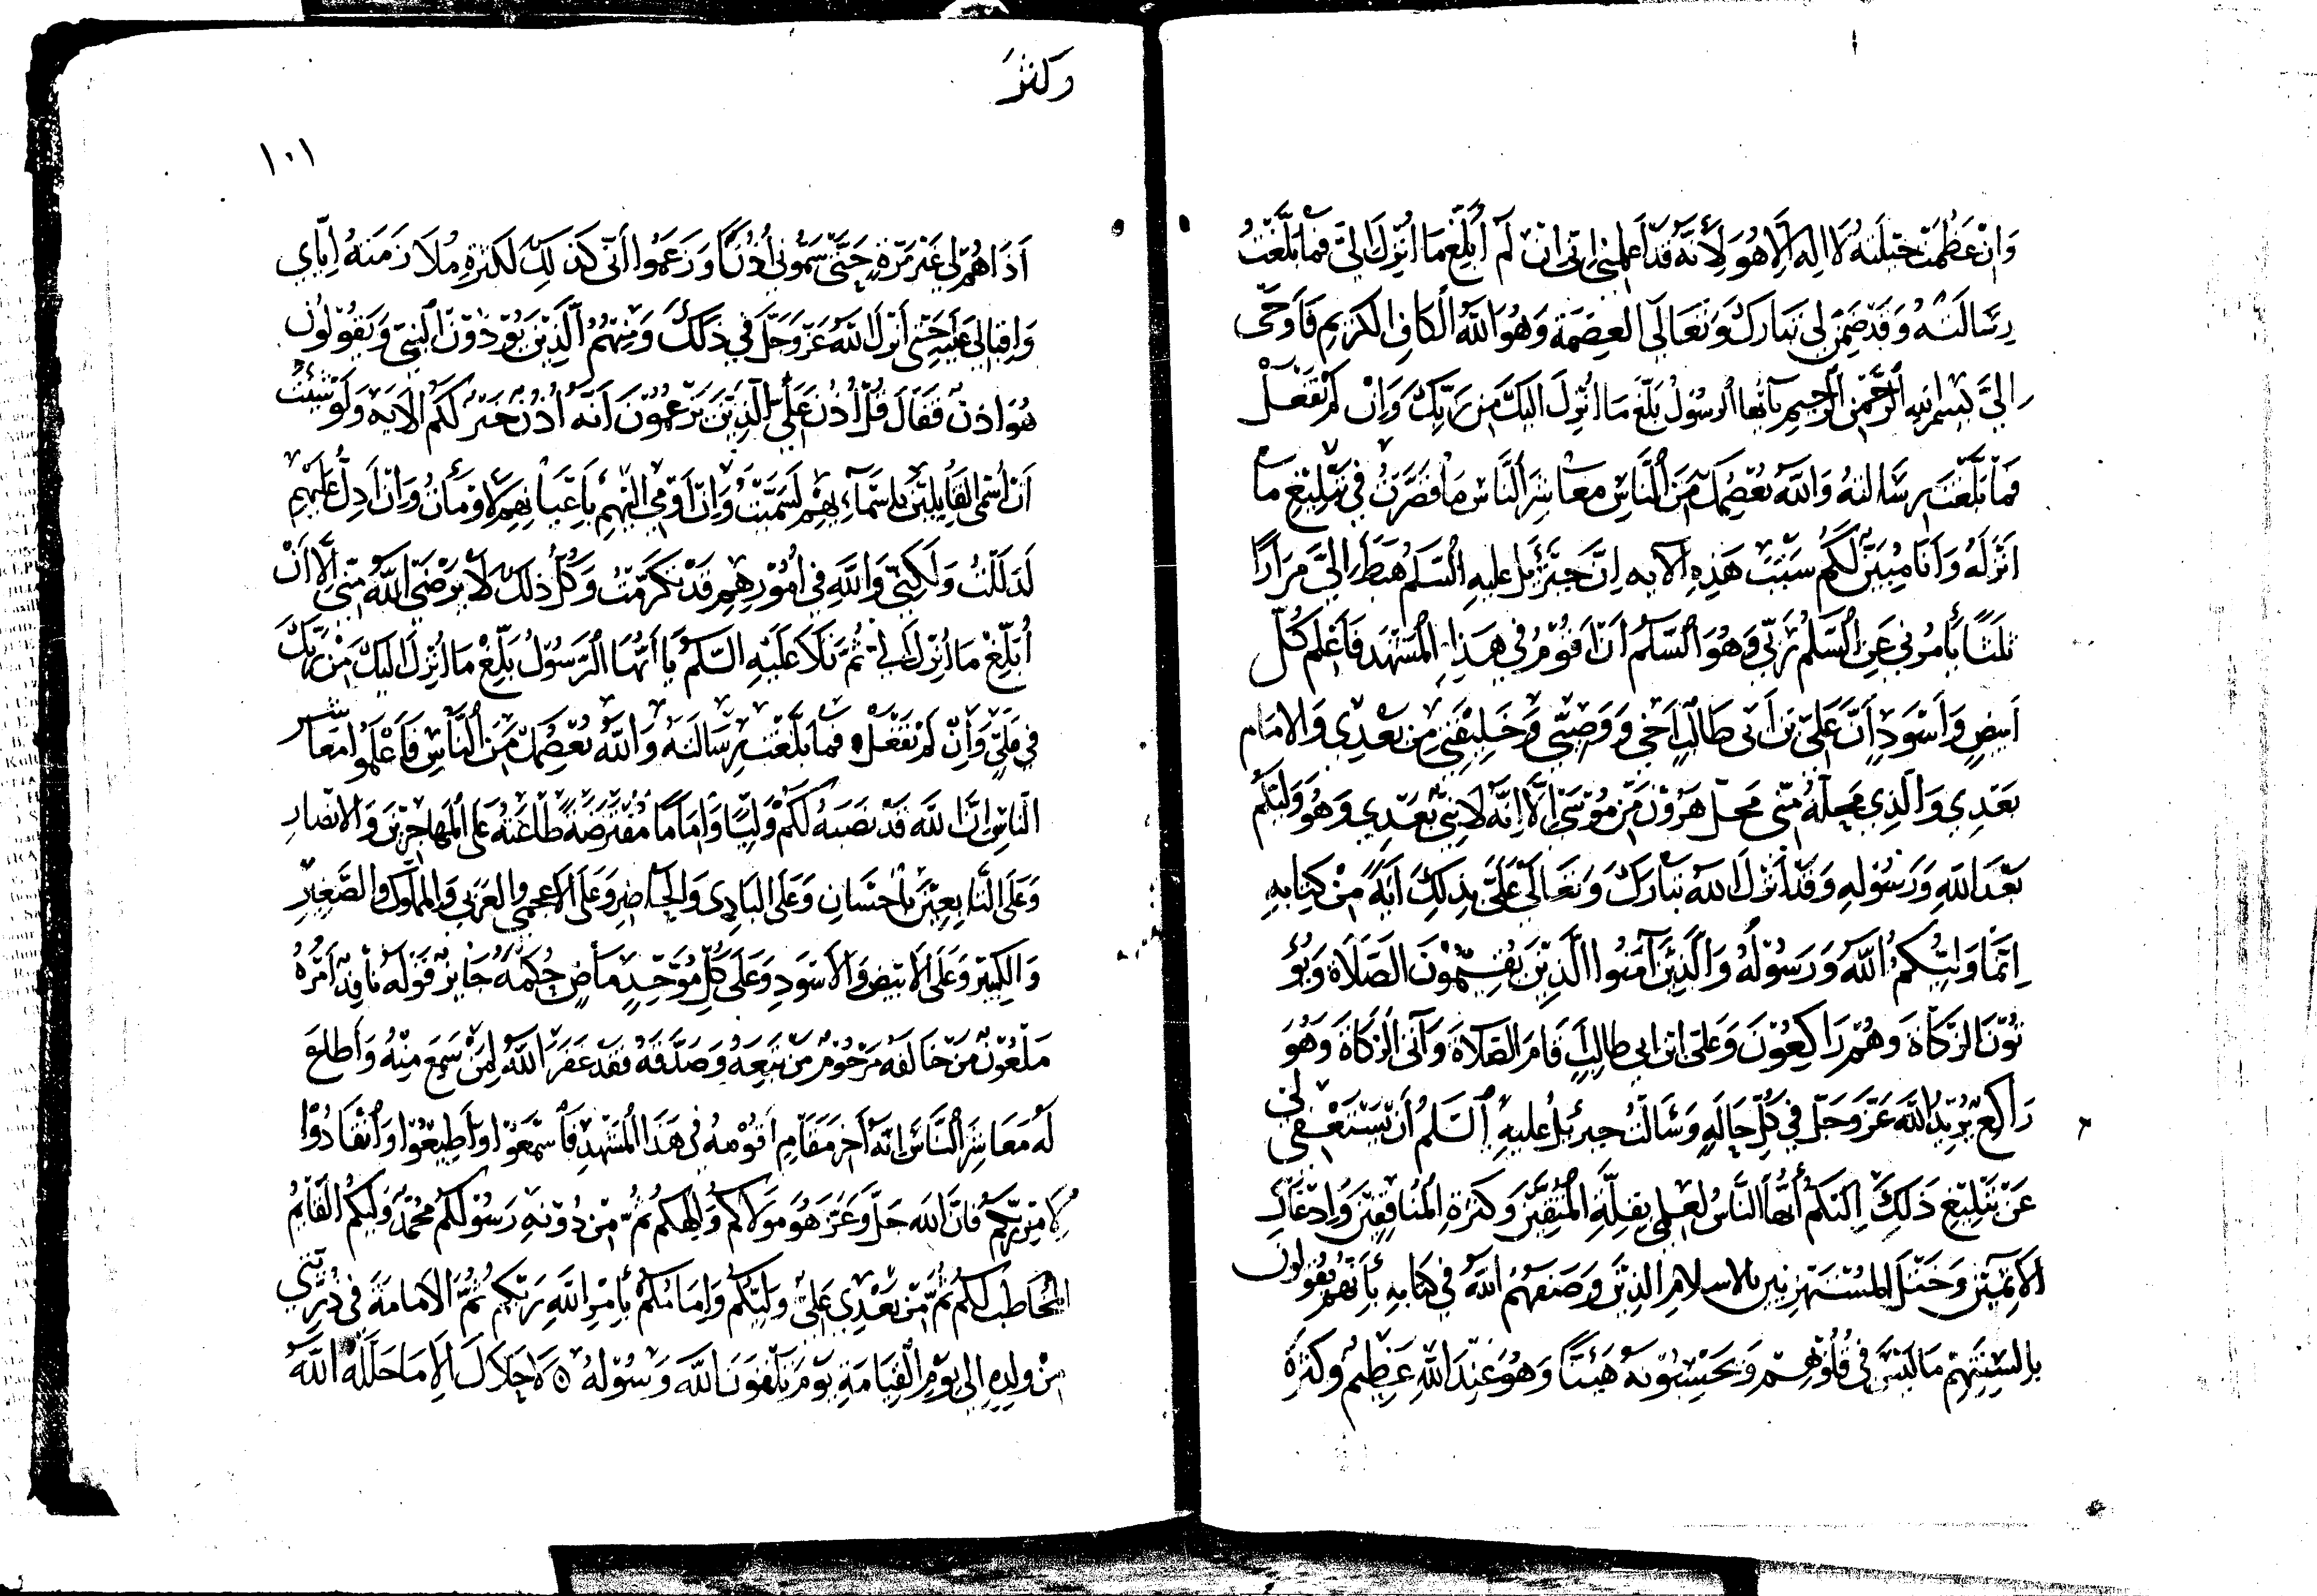 وَانْ عَظُمَتْ حيلَتهُ لَا اِلهَ اِلَّا هُوَ لِأَنَّهُ قَدْ أَعلَمَنِى اِنّى اِنْ لَمْ أُبَلِّغْ مَا اُنْزِلَ اِلَىَّ فَمَا بَلَّغْتُ
رِسَالَتَهُ وَقَدْ ضَمِنَ لِى تَبَارَكَ وَتَعَالَى العِصْمَةَ وَهُوَ اللَّهُ الْكَافِى الكَرِيمِ فَأَوحَى
اِلىَّ بِسْمِ اللهِ الرَّحْمنِ الرَّحِيمِ يَا أَيُّهَا الرَّسُولُ بَلِّغْ مَا اُنْزِلَ اِلَيكَ مِن رَبِّكَ وَاِنْ لَمْ تَفْعَلْ
فَمَا بَلَّغْتَ رِسَالتَهُ وَاللهُ يَعْصِمُكَ مِنَ النَّاسِ مَعَاشِرَ النَّاسِ مَا قَصَّرْتُ فِي تَبْلِيْغِ مَا
اَنْزَلَهُ وَأَنَا مُبَيِّنٌ لَكُم سَبَبَ هَذِهِ الآيه اِنَّ جَبْرَئِيلَ عليهِ السَّلَم هَبَطَ اِلَىَّ مِرَارًا
ثَلَثًا يَأْمُرُنِي عَنِ السَّلَمِ رَبِّى وَهُوَ السَّلَمُ اَنْ اَقُوْمَ فِي هَذَا الْمَشْهَدِ فَاُعْلِمَ كُلَّ
اَبيَضٍ وَأَسْوَدٍ اَنَّ عَلِىَّ بْنَ أَبِى طَالِبٍ أَخِى وَوَصِيِّى وَخَلِيْفَتِى مِن بَعْدِى وَالامَام
بَعْدِي وَالَّذِي مَحلّهُ مِنّى مَحلّ هَرُوْنَ مِنْ مُوْسَى اِلَّا اِنَّهُ لَا نَبِىَّ بَعْدِي وَهُوَ وَلِيُّكُم
بَعْدَ اللهِ وَرَسُوْلِهِ وَقَدْ أَنْزَلَ اللهُ تَبَارَكَ وَتَعَالَى عَلَىَّ بِذَلِكَ آيَةً مِنْ كِتَابِهِ
اِنَّمَا وَلِيُّكُمُ اللهُ وَرَسُوْلُهُ وَالَّذِيْنَ آمَنُوا الَّذِيْنَ يُقِيْمُوْنَ الصَّلَاةَ وَيُؤْ
تُوْنَ الزَّكَاةَ وَهُمْ رَاكِعُوْنَ وَعَلِىّ ابن ابى طالِبٍ قَامَ الصَّلَاةَ وَآتَى الزَّكَاةَ وَهُوَ
رَاكِعٌ يُرِيْدُ اللهَ عَزَّ وَجَلَّ فِي كُلِّ حَالِهِ وَسَأَلْتُ جبرئيلُ عليهِ السَّلَمُ أَنْ يَسْتَعْفِىَ لِى
عَنْ تَبْلِيْغِ ذَلِكَ اِلَيْكُمْ أَيُّهَا النَّاسُ لِعِلْمِى بِقِلَّةِ الْمُتَّقِيْنَ وَكَثْرَةِ الْمُنَافِقِيْنَ وَاِدْغَالِ
الآثِمِيْنَ وَخَتْلَ المُسْتَهْزِئِين بالاسلامِ الذِيْنَ وَصَفَهُمُ اللهُ فِي كِتَابِهِ بِأَنَّهُمْ يَقُولُون
بِالْسِنَتِهِمْ مَا لَيْسَ فِي قُلُوْبِهِمْ وَيَحْسَبُوْنَهُ هَيِّنًا وَهُوَ عِنْدَ اللهِ عَظِيْمٌ وكَثْرَة
وكثرَ
١٠١
اَذَاهُمْ لِي غَيْرَ مَرَّةٍ حَتَّى سَمُّوْنِى أُذُنًا وَزَعَمُوا أَنِّى كَذلِكَ لَكَثْرَةِ مُلَازَمَتهُ اِيَّاي
وَاِقْبَالِى عَلَيهِ حَتَّى أَنْزَلَ اللهُ عَزَّ وَجَلَّ فِي ذَلِكَ وَمِنْهُمُ الَّذِيْنَ يُؤْذُوْنَ النَّبِىَّ وَيَقُوْلُوْنَ
هُوَ اُذُنٌ فَقَالَ قُلْ اُذُنُ عَلَى الَّذِيْنَ يَزْعُمُوْنَ اَنَّهُ اُذُنُ خَيْرٍ لَكُم الآيَهْ وَلَوْ شِئْتُ
اَنْ اُسَمِّى القَايِلِيْنَ بِاَسْمَآءِ بِهِمْ لَسَمَّيْتُ وَاِنْ اَوْمِي اِلَيْهِمْ بِاَعْيَانِهِمْ لَاوْمَأْتُ وَاِنْ اَدِلَّ عَلَيْهِم
لَدَلَلْتُ وَلَكِنِّى وَاللهِ فِي اُمُوْرِهِمْ قَدْ تَكَرَّمْتُ وَكُلُّ ذلِكَ لَا يَرْضَى اللهُ مِنّى اِلَّا اَنْ
اُبَلِّغْ مَا اُنْزِلَ اِلىَّ ثُمَّ تَلَا عَلَيْهِ السَّلَمُ يَا اَيُّهَا الرَّسُوْلُ بَلِّغْ مَا اُنْزِلَ اِلَيْكَ مِنْ رَبِّكَ
فِي عَلِيٍّ وَاِنْ لَمْ تَفْعَلْ فَمَا بَلَّغْتَ رِسَالَتَهُ وَاللهُ يَعْصِمُكَ مِنَ النَّاسِ فَاَعْلَمُوا مَعَاشر
النَّاسِ اِنَّ اللهَ قَدْ نَصَبَهُ لَكُمْ وَلِيًّا وَاِمَامًا مُفْتَرَضَةً طَاعَتُهُ عَلى المهَاجِرِيْنَ وَالانْصَارِ
وَعَلَى التَّابِعِيْنَ بِاِحْسَانٍ وَعَلَى البَادِى وَالحَاضِرِ وَعَلَى الاعجَمِى والعَرَبِى وَالمملُوك والصَّغِيْرِ
وَالكَبِيْرِ وَعَلَى الابْيَضِ وَالاَسْوَدِ وَعَلَى كُلِّ مُوَحِّدٍ مَاضٍ حُكمُهُ جَايِزٌ قَوْلهُ نَافِذٌ اَمْرُهُ
مَلْعُوْنٌ مَنْ خَالَفَهُ مَرْحُوْمٌ مَنْ تَبِعَهُ وَصَدَّقَهُ فَقَدْ غَفَرَ اللهُ لِمَنْ سَمِعَ مِنْهُ وَأَطَاعَ
لَهُ مَعَاشِرَ النَّاسِ اِنَّهُ آخِرُ مَقَامٍ اَقُوْمهُ فِى هَذَا الْمَشْهَدِ فَاَسْمَعُوْا وَاَطِيْعُوْا وَاْنْقَادُوْا
لاِمْرِ رَبِّكُم فَاِنَّ اللهَ جَلَّ وَعَزَّ هُوَ مَوْلَاكُم وَاِلهُكُم ثُمَّ مِنْ دُوْنِهِ رَسُوْلكُم مُحَمَّدٌ وَلِيُّكُمُ القَايِمُ
المُخَاطِبُ لَكُمْ ثُمَّ مِنْ بَعْدِي عَلِىٌّ وَلِيُّكُمْ وَاِمَامُكُمْ بِأَمْرِ اللهِ رَبِّكُم ثُمَّ الاِمَامَةُ فِي ذُرِّيَّتِي
مِنْ وِلدِهِ اِلى يَوْمِ الْقِيَامَةِ يَوْمَ تَلْقَوْنَ اللهَ وَرَسُوْلَهُ لَا حَلَالَ اِلَّا مَا حَلَّلَهُ اللهُ